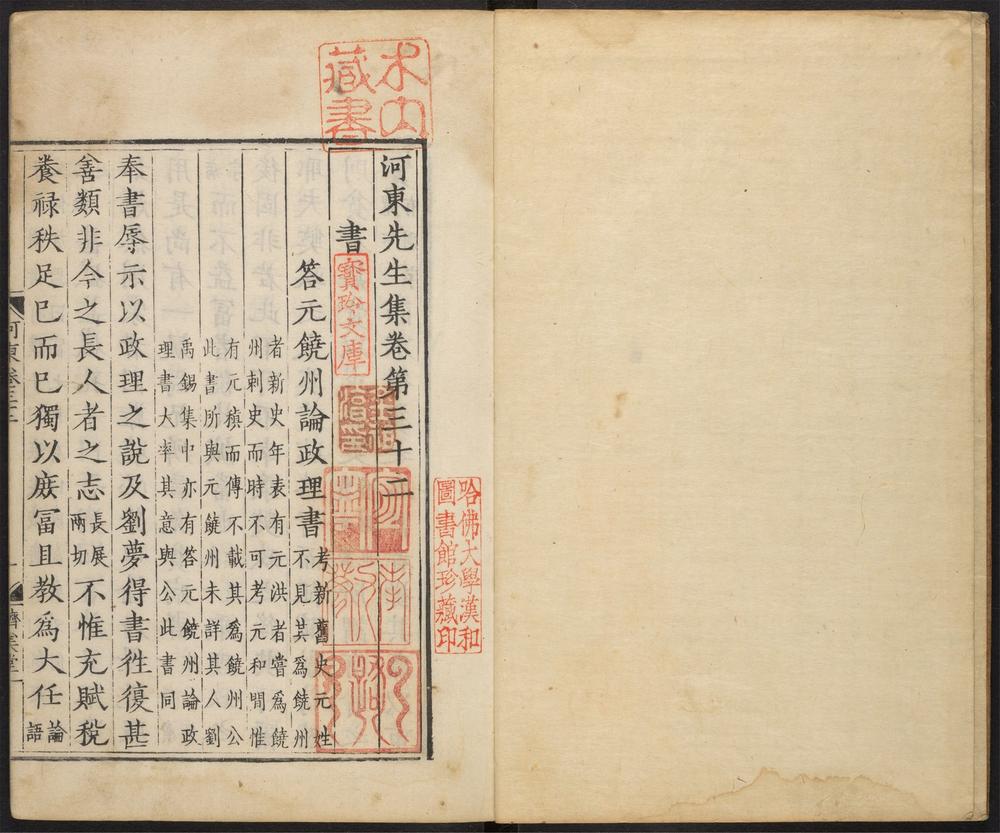 河東先生集卷第三十二
書
答元饒州論政理書
考新舊史元姓
不見其爲饒州
者新史年表有元洪者嘗爲饒
州刺史而時不可考元和間惟
有元稹而傳不載其爲饒州公
此書所與元饒州未詳其人劉
禹錫集中亦有答元饒州論政
理書大率其意與公此書同
奉書辱示以政理之說及劉夢得書徃復甚
善類非今之長人者之志長展兩切不惟充賦稅
養祿秩足已而已獨以庶冨且教爲大任論語
河東卷三十二
濟美堂
木
藏書
寳珍文庫
哈佛大學漢和
圖書館珍藏印